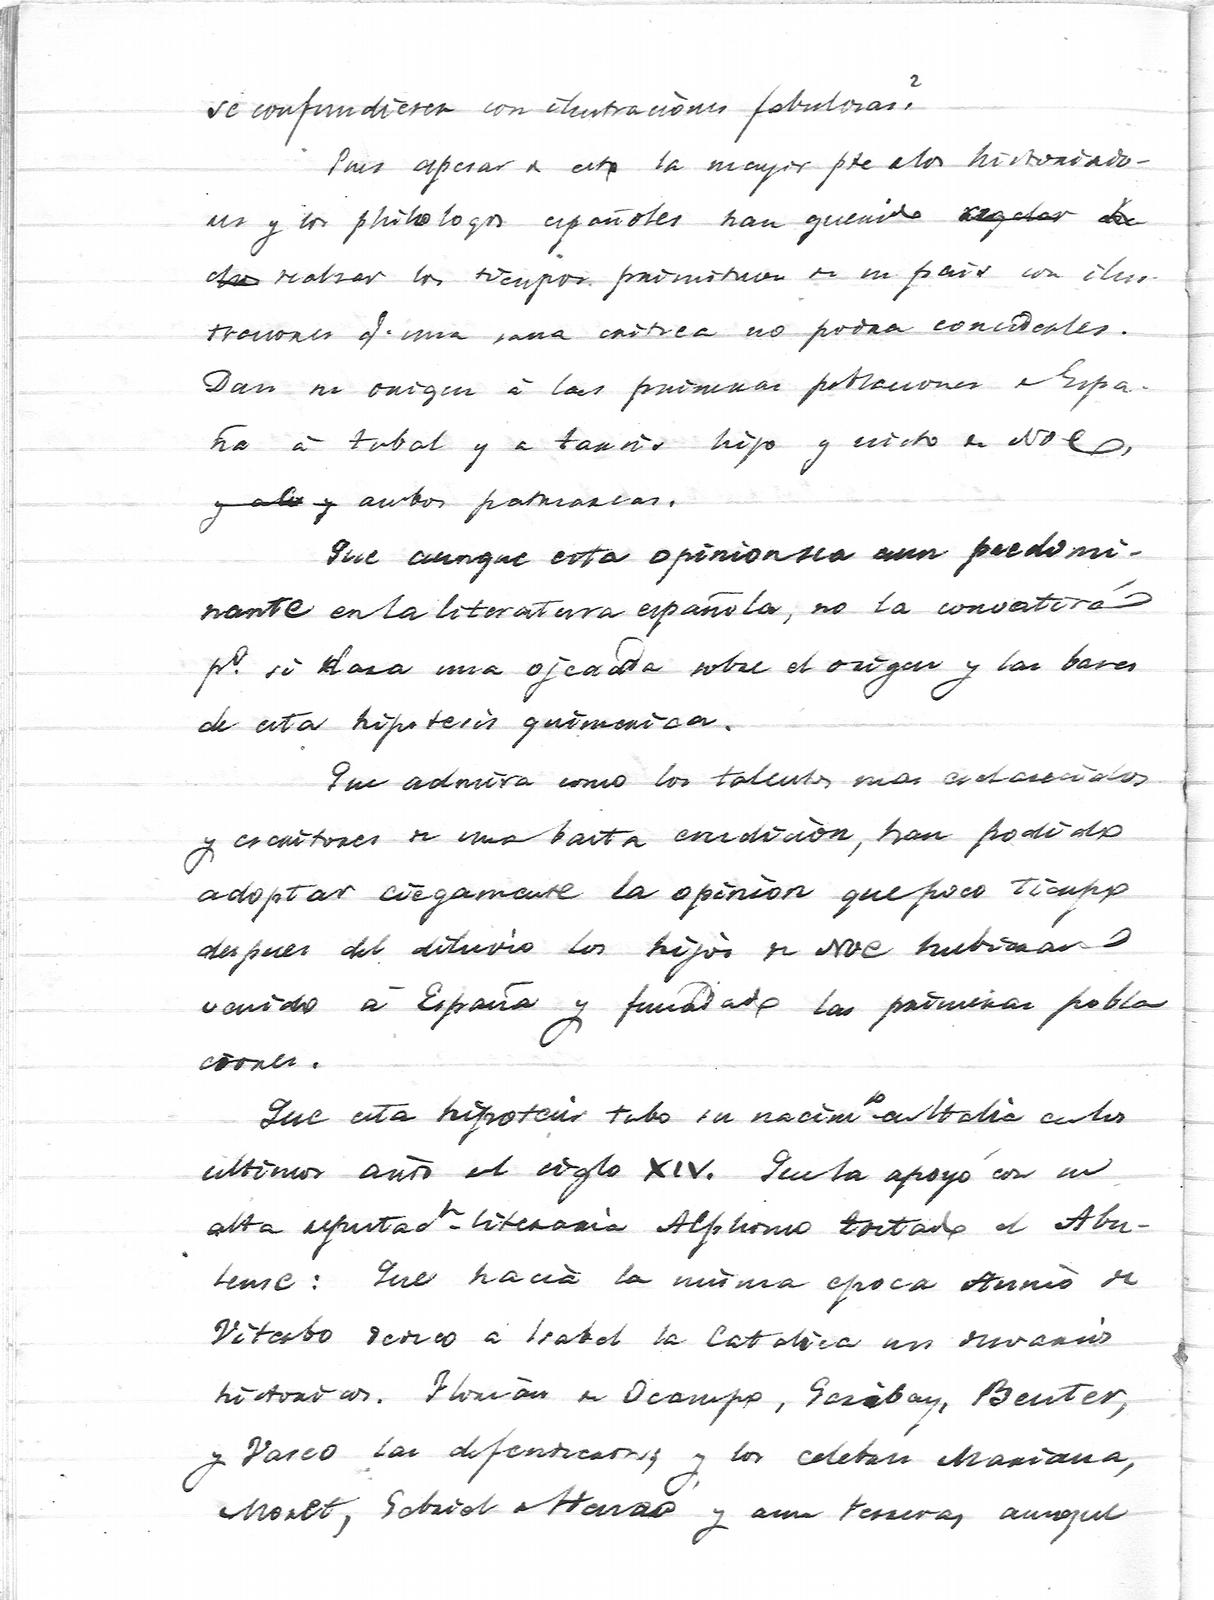 se confundiesen con ilustraciones fabulosas?
Pues apesar de esto la mayor pte de los historiado-
res y los philologos españoles han querido regalar de
realzar los tiempos primitivos de su pais con ilus-
traciones q. una sana critica no podra concederles.
Dan su origen á las primeras poblaciones de Espa-
ña á tubal y a tarsis hijo y nieto de NOE,
y ambos patriarcas.
Que aunque esta opinion sea aun predomi-
nante en la literatura española, no la convatirá
pº. si dara una ojeada sobre el origen y las bases
de esta hipotesis quimerica.
Que admira como los talentos mas esclarecidos
y escritores de una basta erudicion, han podido
adoptar ciegamente la opinion que poco tiempo
despues del diluvio los hijos de NOE hubieran
venido á España y fundado las primeras pobla
ciones.
Que esta hipotesis tubo su nacimto en Italia en los
ultimos años del siglo XIV. Que la apoyó con su
alta reputacn literaria Alphonso tostado el Abu-
lense: Que hacia la misma epoca Annio de
Viterbo dedico a Isabel la Catolica sus desvarios
historicos. Florian de Ocampo, Garibay, Beuter,
y Vaseo las defendieron; y los celebran Mariana,
Moret, Gabriel de Henao y aun Ferreras, aunque